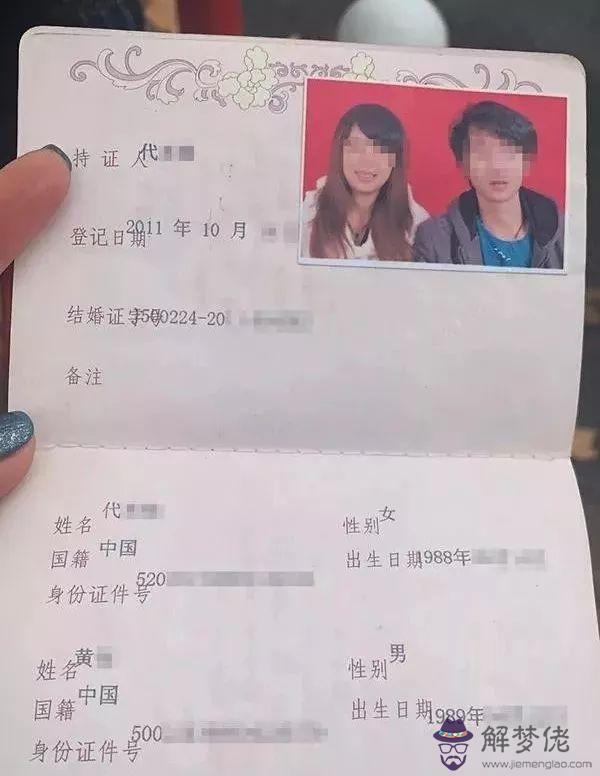 持证人 代
登记日期 2011 年 10 月
结婚证字号 J500224-20
备注
姓名 代 性别 女
国籍 中国 出生日期 1988年
身份证件号 520
姓名 黄 性别 男
国籍 中国 出生日期 1989年
身份证件号 500
解梦佬
www.jiemenglao.com